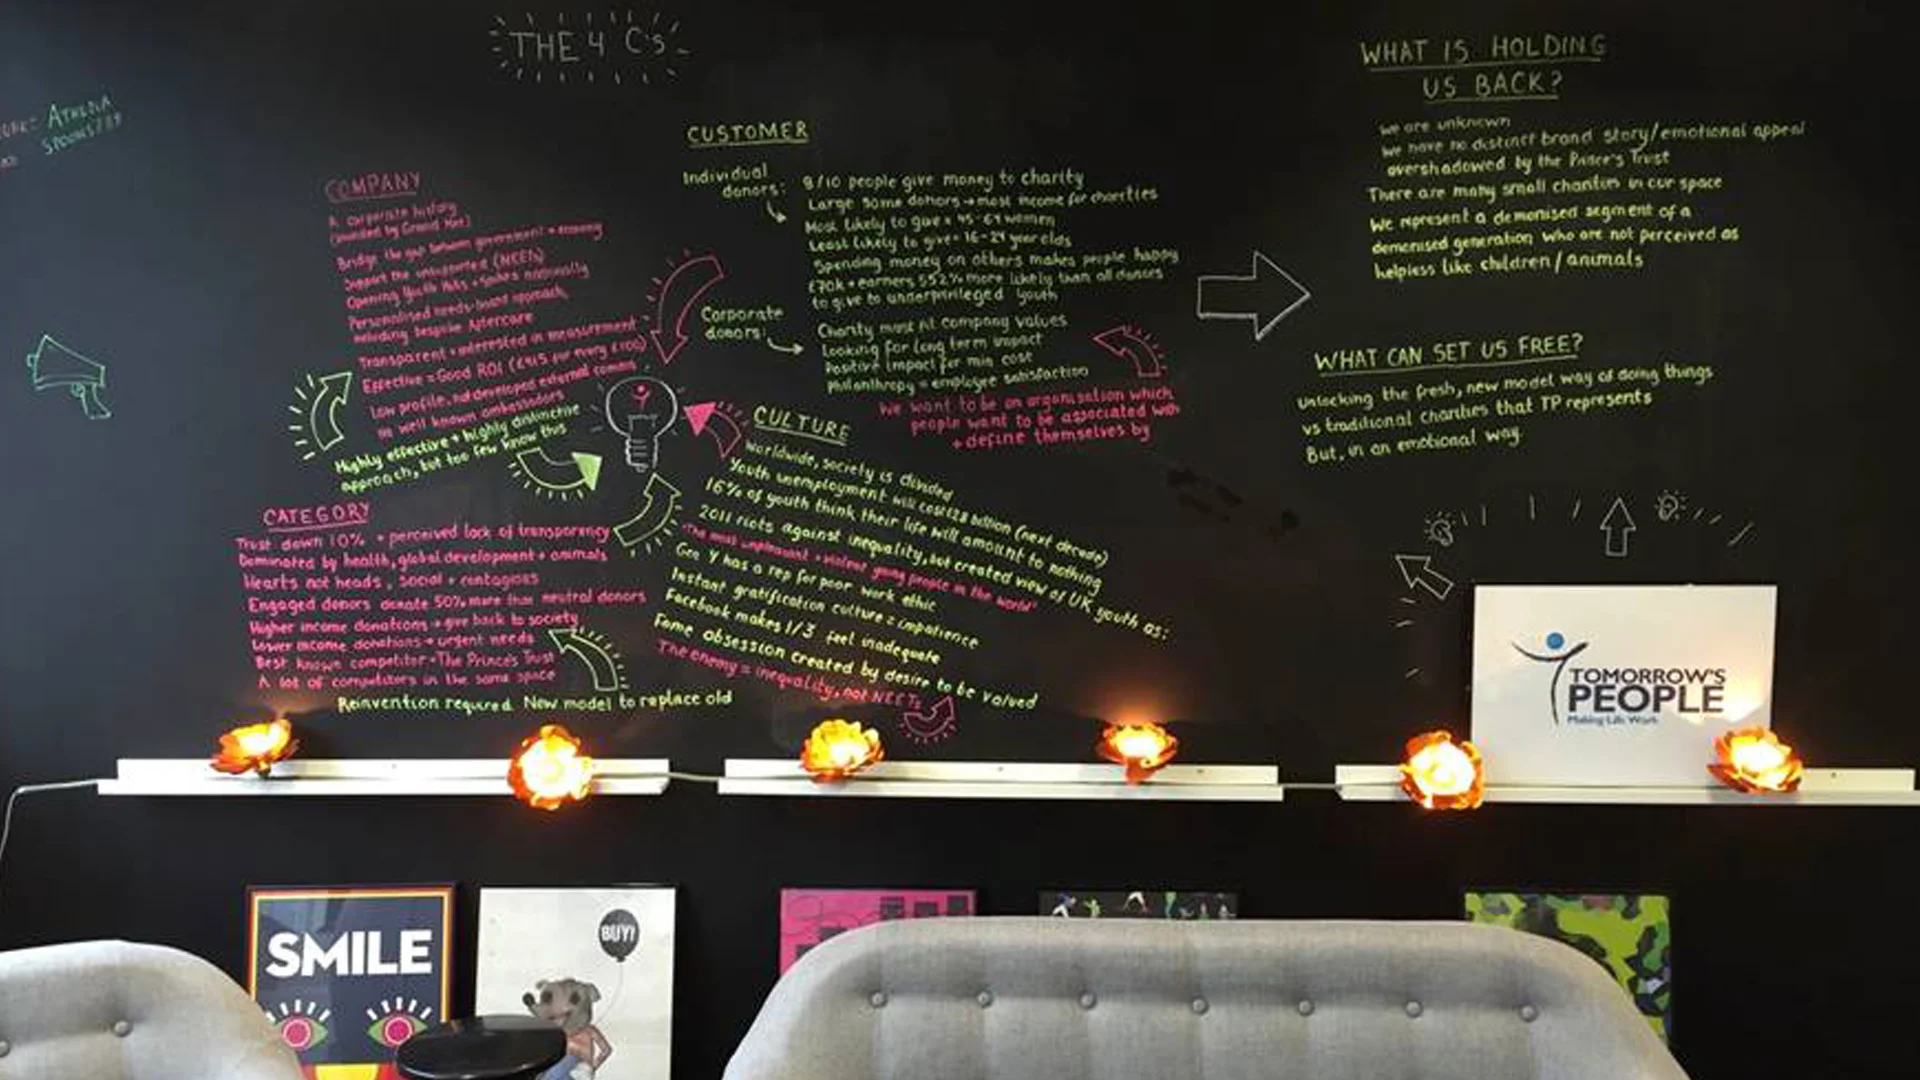 THE 4 C's
ATHLONA
SPONSISTY
COMPANY
A corporate history
(founded by Grand Met)
Bridge the gap between government +
Support the unsupported (NEETs)
Opening Youth Hubs + Spokes nationally
Personalised needs-based approach,
including bespoke Aftercare
Transparent + interested in measurement
Effective = Good ROI (£415 for every £100)
Low profile, developed external comms
no well known ambassadors
Highly effective + highly distinctive
approach, but too few know this
CATEGORY
Trust down 10% + perceived lack of transparency
Dominated by health, global development + animals
Hearts not heads, social + contagious
Engaged donors donate 50% more than neutral donors
Higher income donations → give back to society
Lower income donations → urgent needs
Best known competitor = The Prince's Trust
A lot of competitors in the same space
Reinvention required. New model to replace old
CUSTOMER
Individual
donors:
8/10 people give money to charity
Large sums donors → most income for charities
Most likely to give = 45-64 women
Least likely to give = 16-24 year olds
Spending money on others makes people happy
£70k + earners 52% more likely than all donors
to give to underprivileged youth
Corporate
donors:
Charity must fit company values
Looking for long term impact
Positive impact for min cost
Philanthropy = employee satisfaction
We want to be an organisation which
people want to be associated with
+ define themselves by
CULTURE
Worldwide, society is divided
Youth unemployment will cost £28 billion (next decade)
16% of youth think their life will amount to nothing
2011 riots against inequality, but created view of UK youth as:
"The most unpleasant + violent young people in the world"
Gen Y has a rep for poor work ethic
Instant gratification culture = impatience
Facebook makes 1/3 feel inadequate
Fame obsession created by desire to be valued
The enemy = inequality, not NEETs
WHAT IS HOLDING
US BACK?
We are unknown
We have no distinct brand story/emotional appeal
overshadowed by the Prince's Trust
There are many small charities in our space
We represent a demonised segment of a
demonised generation who are not perceived as
helpless like children/animals
WHAT CAN SET US FREE?
Unlocking the fresh, new model way of doing things
vs traditional charities that TP represents
But, in an emotional way.
TOMORROW'S
PEOPLE
Making Life Work
SMILE
BUY!